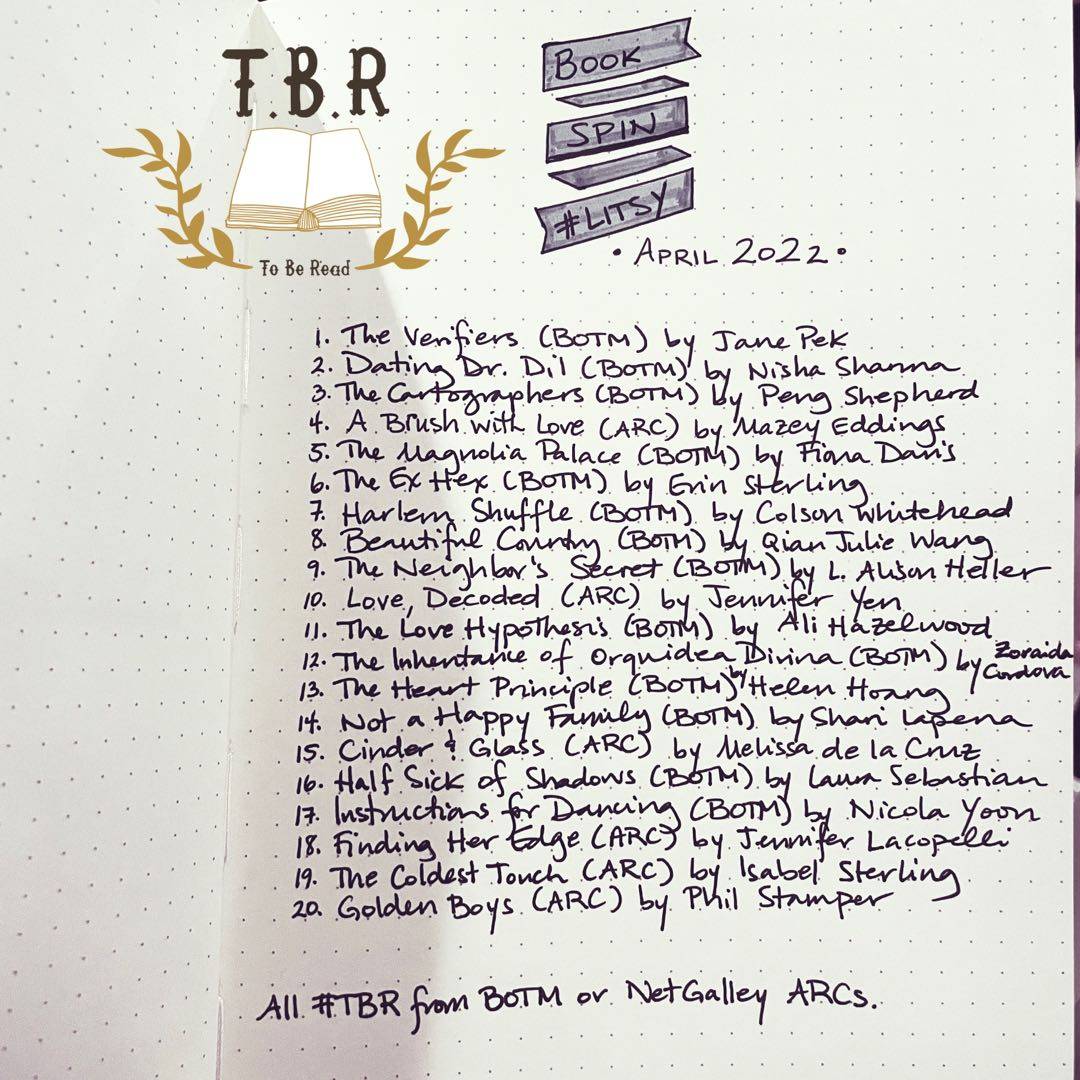 T.B.R
To Be Read
BOOK
SPIN
#LITSY
• APRIL 2022 •
1. The Verifiers (BOTM) by Jane Pek
2. Dating Dr. Dil (BOTM) by Nisha Sharma
3. The Cartographers (BOTM) by Peng Shepherd
4. A Brush with Love (ARC) by Mazey Eddings
5. The Magnolia Palace (BOTM) by Fiona Davis
6. The Ex Hex (BOTM) by Erin Sterling
7. Harlem Shuffle (BOTM) by Colson Whitehead
8. Beautiful Country (BOTM) by Qian Julie Wang
9. The Neighbor's Secret (BOTM) by L. Alison Heller
10. Love, Decoded (ARC) by Jennifer Yen
11. The Love Hypothesis (BOTM) by Ali Hazelwood
12. The Inheritance of Orquidea Divina (BOTM) by Zoraida Cordova
13. The Heart Principle (BOTM) by Helen Hoang
14. Not a Happy Family (BOTM) by Shari Lapena
15. Cinder & Glass (ARC) by Melissa de la Cruz
16. Half Sick of Shadows (BOTM) by Laura Sebastian
17. Instructions for Dancing (BOTM) by Nicola Yoon
18. Finding Her Edge (ARC) by Jennifer Lacopelli
19. The Coldest Touch (ARC) by Isabel Sterling
20. Golden Boys (ARC) by Phil Stamper
All #TBR from BOTM or NetGalley ARCs.